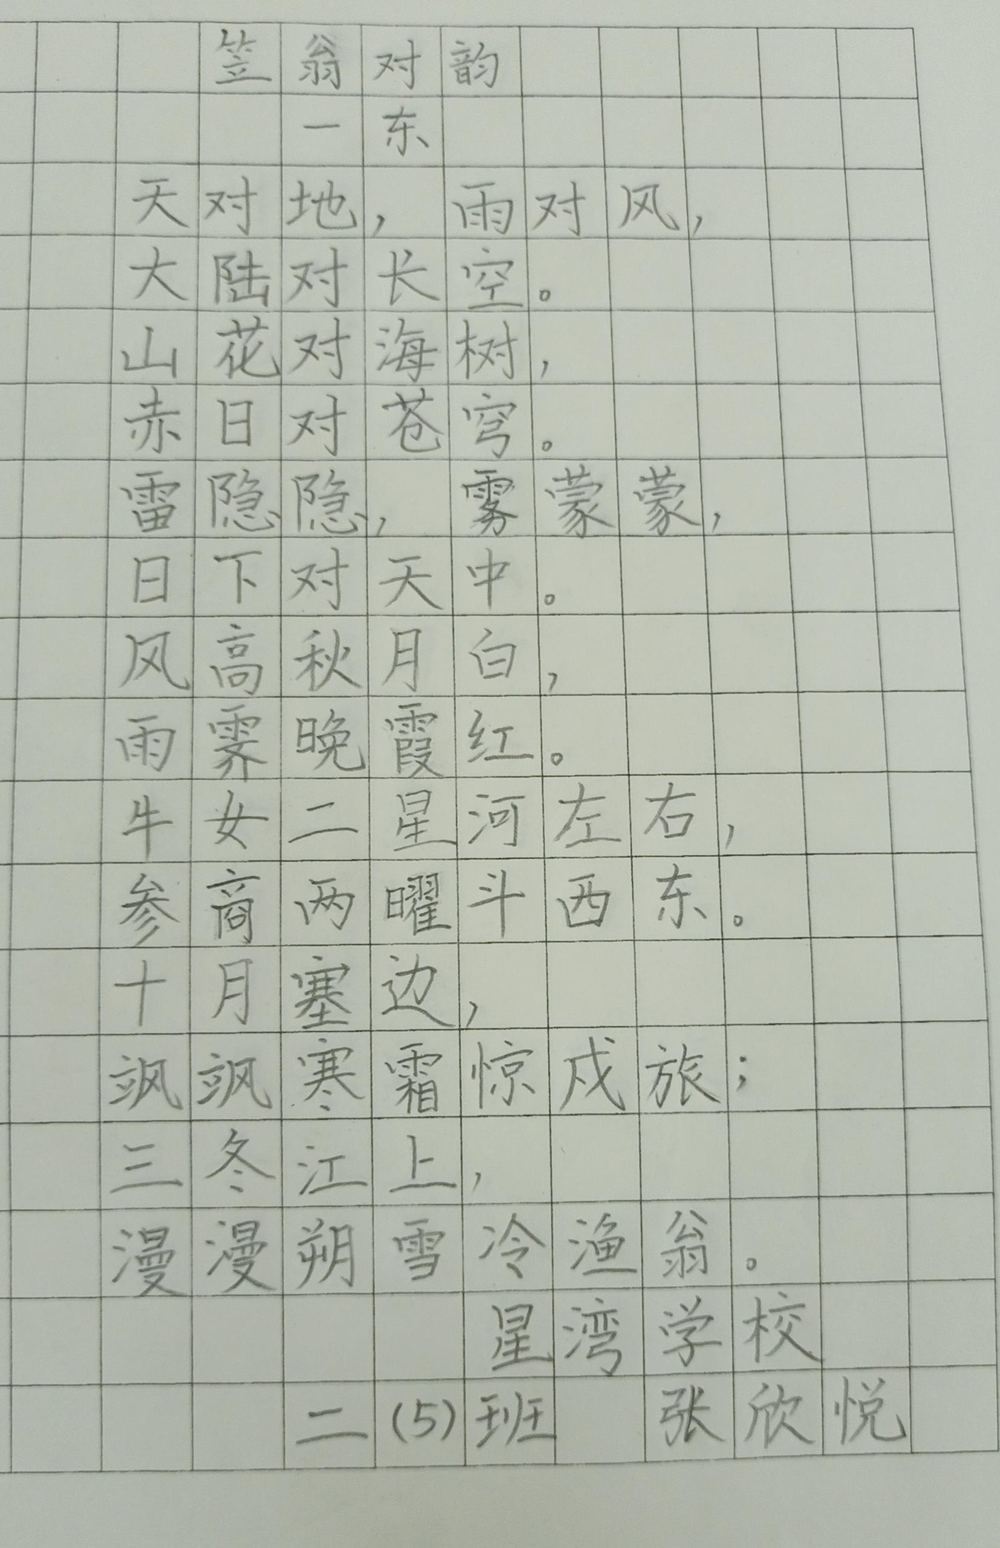 笠翁对韵
一东
天对地，雨对风，
大陆对长空。
山花对海树，
赤日对苍穹。
雷隐隐，雾蒙蒙，
日下对天中。
风高秋月白，
雨霁晚霞红。
牛女二星河左右，
参商两曜斗西东。
十月塞边，
飒飒寒霜惊戍旅；
三冬江上，
漫漫朔雪冷渔翁。
星湾学校
二(5)班 张欣悦